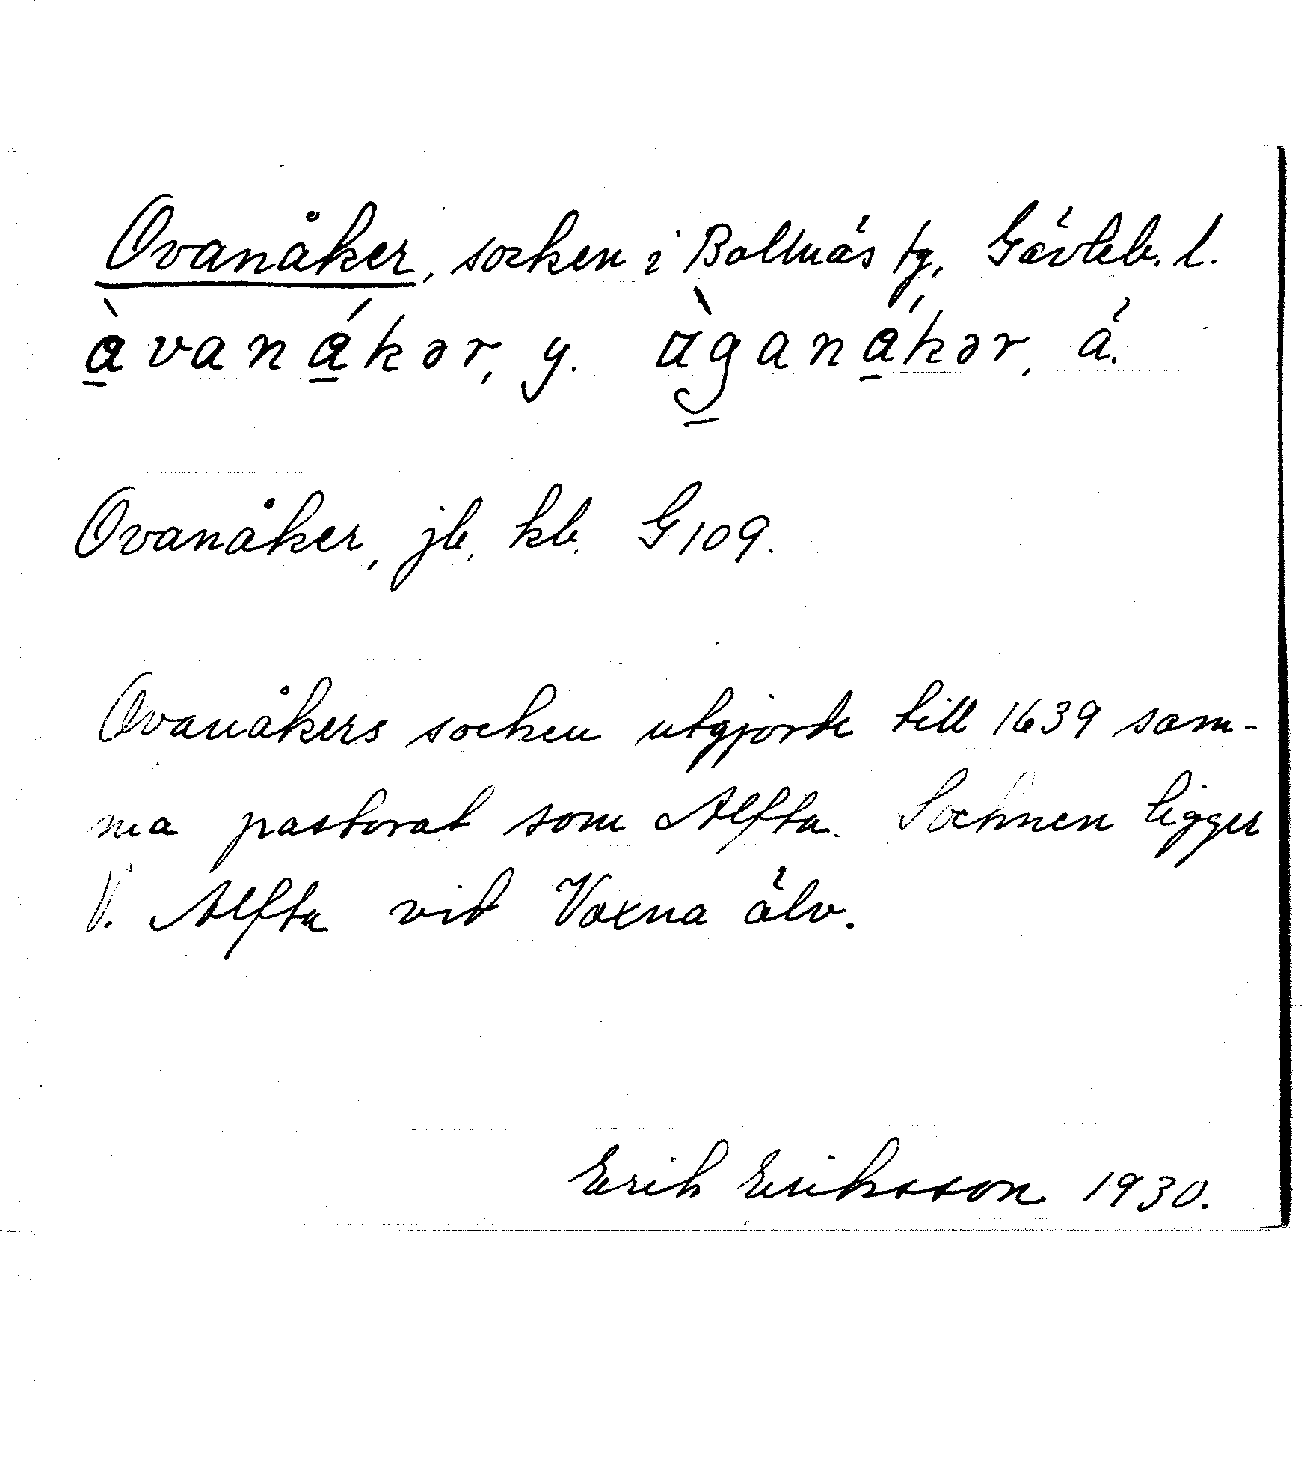 Ovanåker, socken i Bollnäs tg, Gävleb. l.
à̱vaná̱kər, y. àg̱aná̱kər, ä.
Ovanåker, jb, kb. G 109.
Ovanåkers socken utgjorde till 1639 sam-
ma pastorat som Alfta. Socknen ligger
V. Alfta vid Voxna älv.
Erik Eriksson 1930.